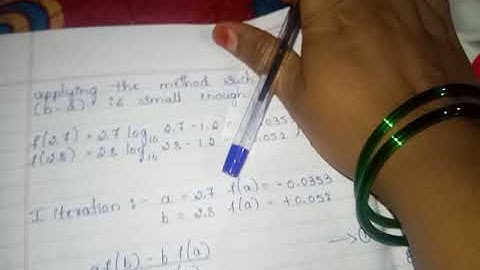 applying the method such
(b - a) is small enough.
f(2.7) = 2.7 log₁₀ 2.7 - 1.2 = -0.0353
f(2.8) = 2.8 log₁₀ 2.8 - 1.2 = 0.052
I iteration :- a = 2.7 f(a) = - 0.0353
b = 2.8 f(a) = + 0.052
a f(b) - b f(a)